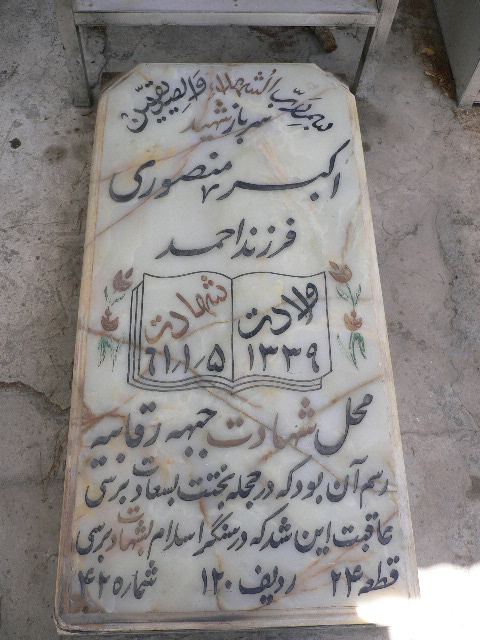 بسم رب الشهداء و الصدیقین
سرباز شهید
اکبر منصوری
فرزند احمد
ولادت
۱۳۳۹
شهادت
۶۱/۱/۵
محل شهادت جبهه رقابیه
رسم آن بود که در حجله بختت بسعادت برسی
عاقبت این شد که در سنگر اسلام بشهادت برسی
قطعه ۲۴ ردیف ۱۲۰ شماره ۴۲